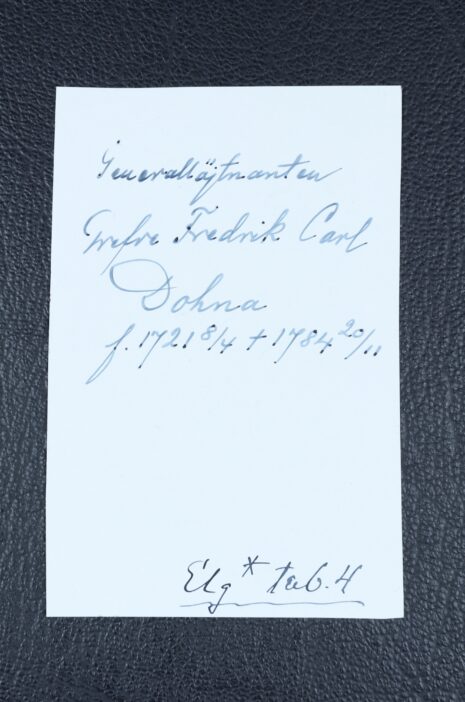 Generallöjtnanten
Grefve Fredrik Carl
Dohna
f. 1721 8/4 + 1784 20/11
Elg* tab. 4